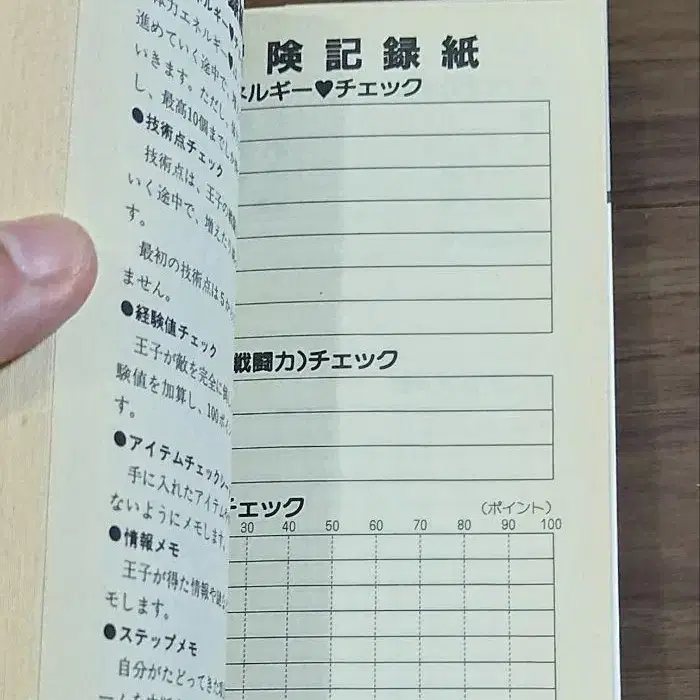 力エネルギー♥
進めていく途中で、
いきます。ただし、
し、最高10個までし
●技術点チェック
技術点は、王子の
いく途中で、増えたり
す。
最初の技術点は5か
ません。
●経験値チェック
王子が敵を完全に
験値を加算し、100ポイン
す。
●アイテムチェックシー
手に入れたアイテム
ないようにメモします。
●情報メモ
王子が得た情報や
モします。
●ステップメモ
自分がたどってきた
険記録紙
ネルギー♥チェック
戦闘力)チェック
チェック
(ポイント)
30 40 50 60 70 80 90 100